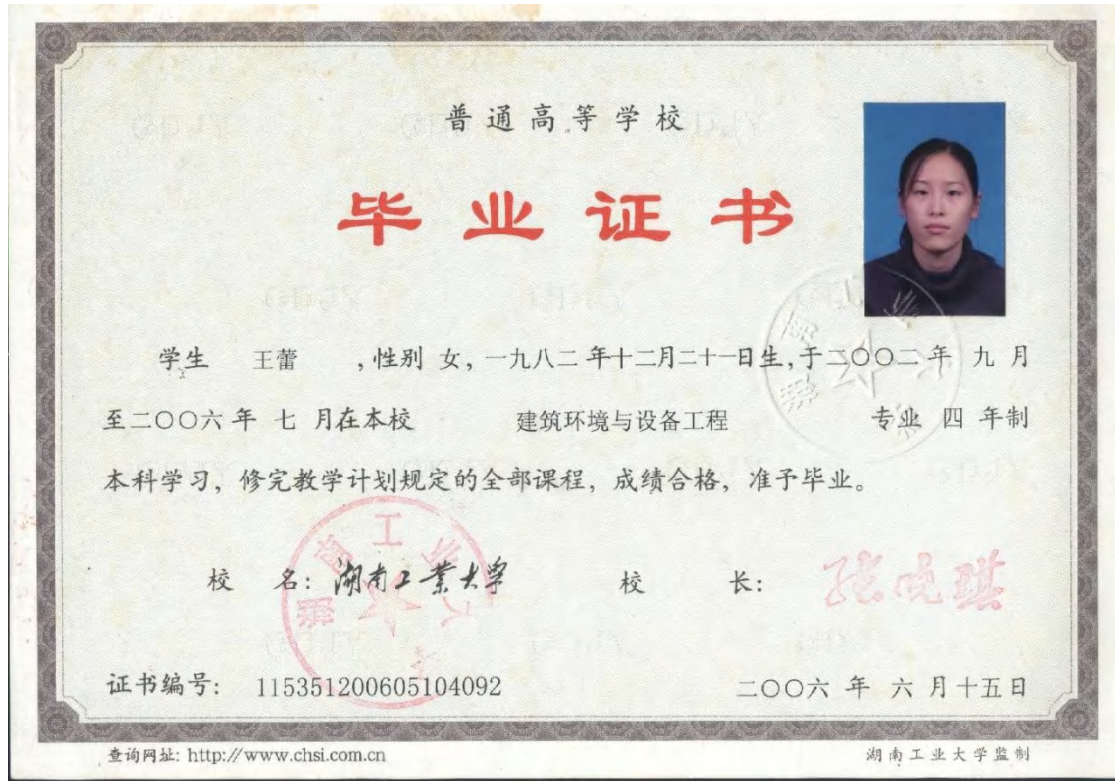 普通高等学校
毕业证书
学生 王蕾 ,性别 女, 一九八二 年十二月二十一日生, 于二〇〇二年 九 月
至二〇〇六 年 七 月在本校 建筑环境与设备工程 专业 四 年制
本科学习, 修完教学计划规定的全部课程, 成绩合格, 准予毕业。
湖南工业大学
校 名: 湖南工业大学 校 长: 张晓琪
证书编号: 115351200605104092 二〇〇六 年 六 月十五日
查询网址: http://www.chsi.com.cn 湖南工业大学监制